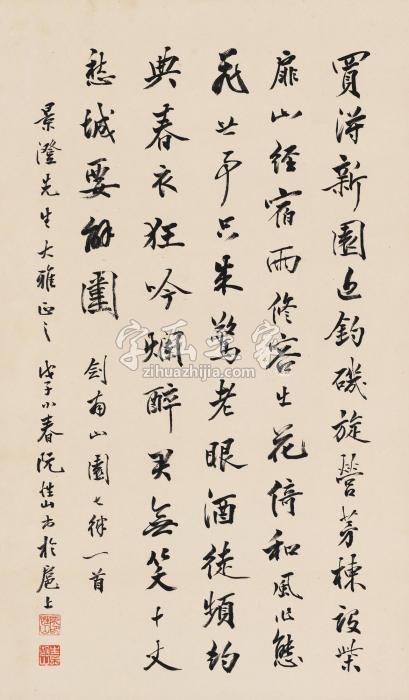 買得新園近釣磯旋營茅棟設柴
扉山經宿雨修容出花倚和風作態
飛世事只來驚老眼酒徒頻約
典春衣狂吟爛醉君無笑十丈
愁城要解圍 劍南山園七律一首
景澄先生大雅正之 戊子小春阮性山書於滬上
字画之家
zihuazhijia.com